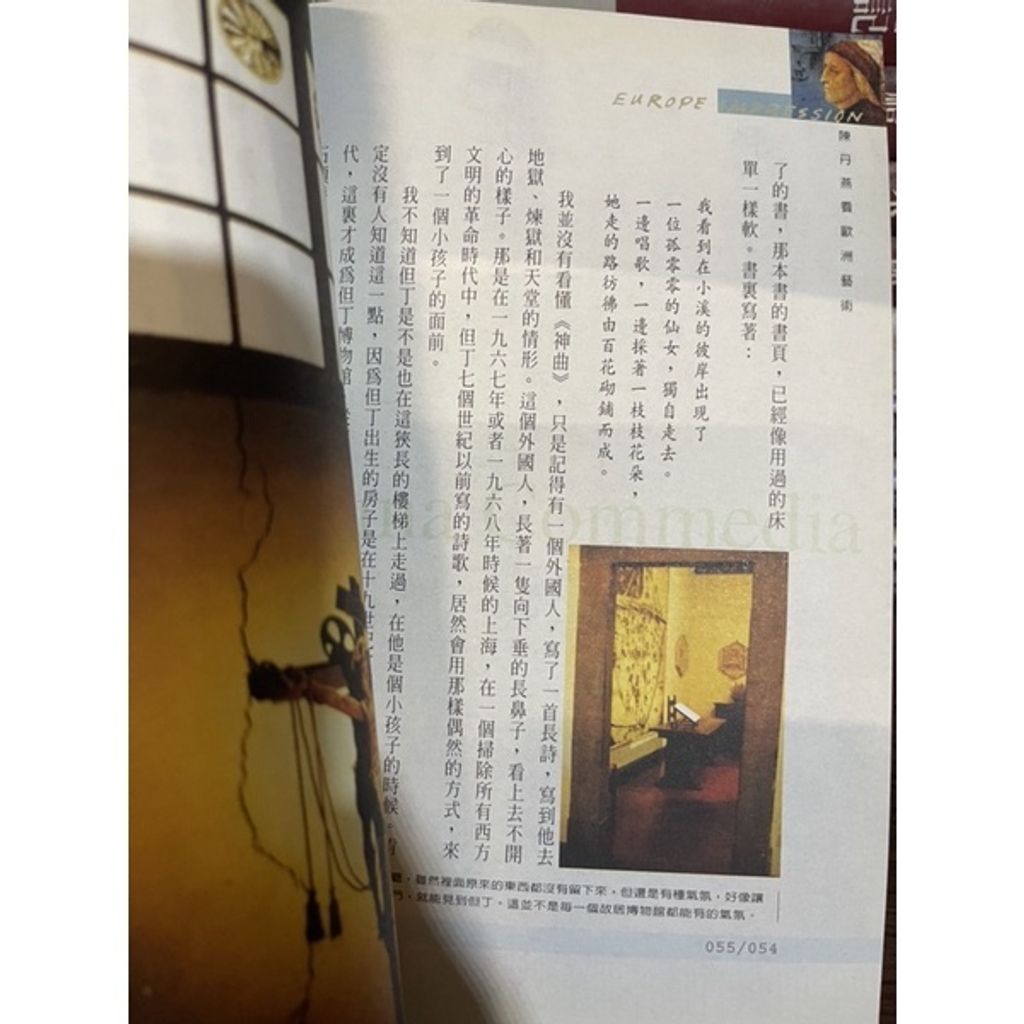 EUROPE IMPRESSION
陳丹燕看歐洲藝術
了的書，那本書的書頁，已經像用過的床
單一樣軟。書裏寫著：
我看到在小溪的彼岸出現了
一位孤零零的仙女，獨自走去。
一邊唱歌，一邊採著一枝枝花朵，
她走的路彷彿由百花砌鋪而成。
我並沒有看懂《神曲》，只是記得有一個外國人，寫了一首長詩，寫到他去
地獄、煉獄和天堂的情形。這個外國人，長著一隻向下垂的長鼻子，看上去不開
心的樣子。那是在一九六七年或者一九六八年時候的上海，在一個掃除所有西方
文明的革命時代中，但丁七個世紀以前寫的詩歌，居然會用那樣偶然的方式，來
到了一個小孩子的面前。
我不知道但丁是不是也在這狹長的樓梯上走過，在他是個小孩子的時候。
定沒有人知道這一點，因爲但丁出生的房子是在十九世紀
代，這裏才成爲但丁博物館
ommedia
雖然裡面原來的東西都沒有留下來，但還是有種氣氛，好像讓
，就能見到但丁。這並不是每一個故居博物館都能有的氣氛。
055/054
記